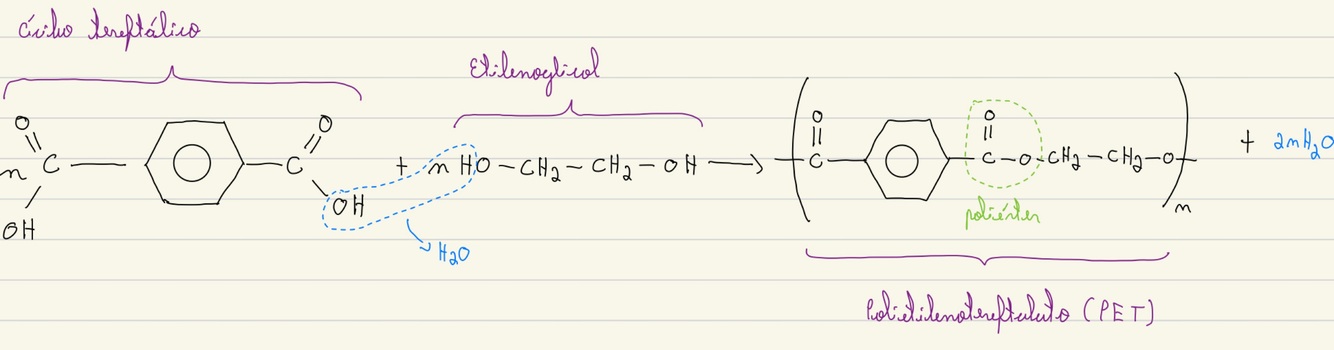 ácido tereftálico
Etilenoglicol
O O O O
n C — C + n HO – CH2 – CH2 – OH → C C – O – CH2 – CH2 – O + 2nH2O
OH OH n
H2O
poliéster
Polietilenotereftalato (PET)